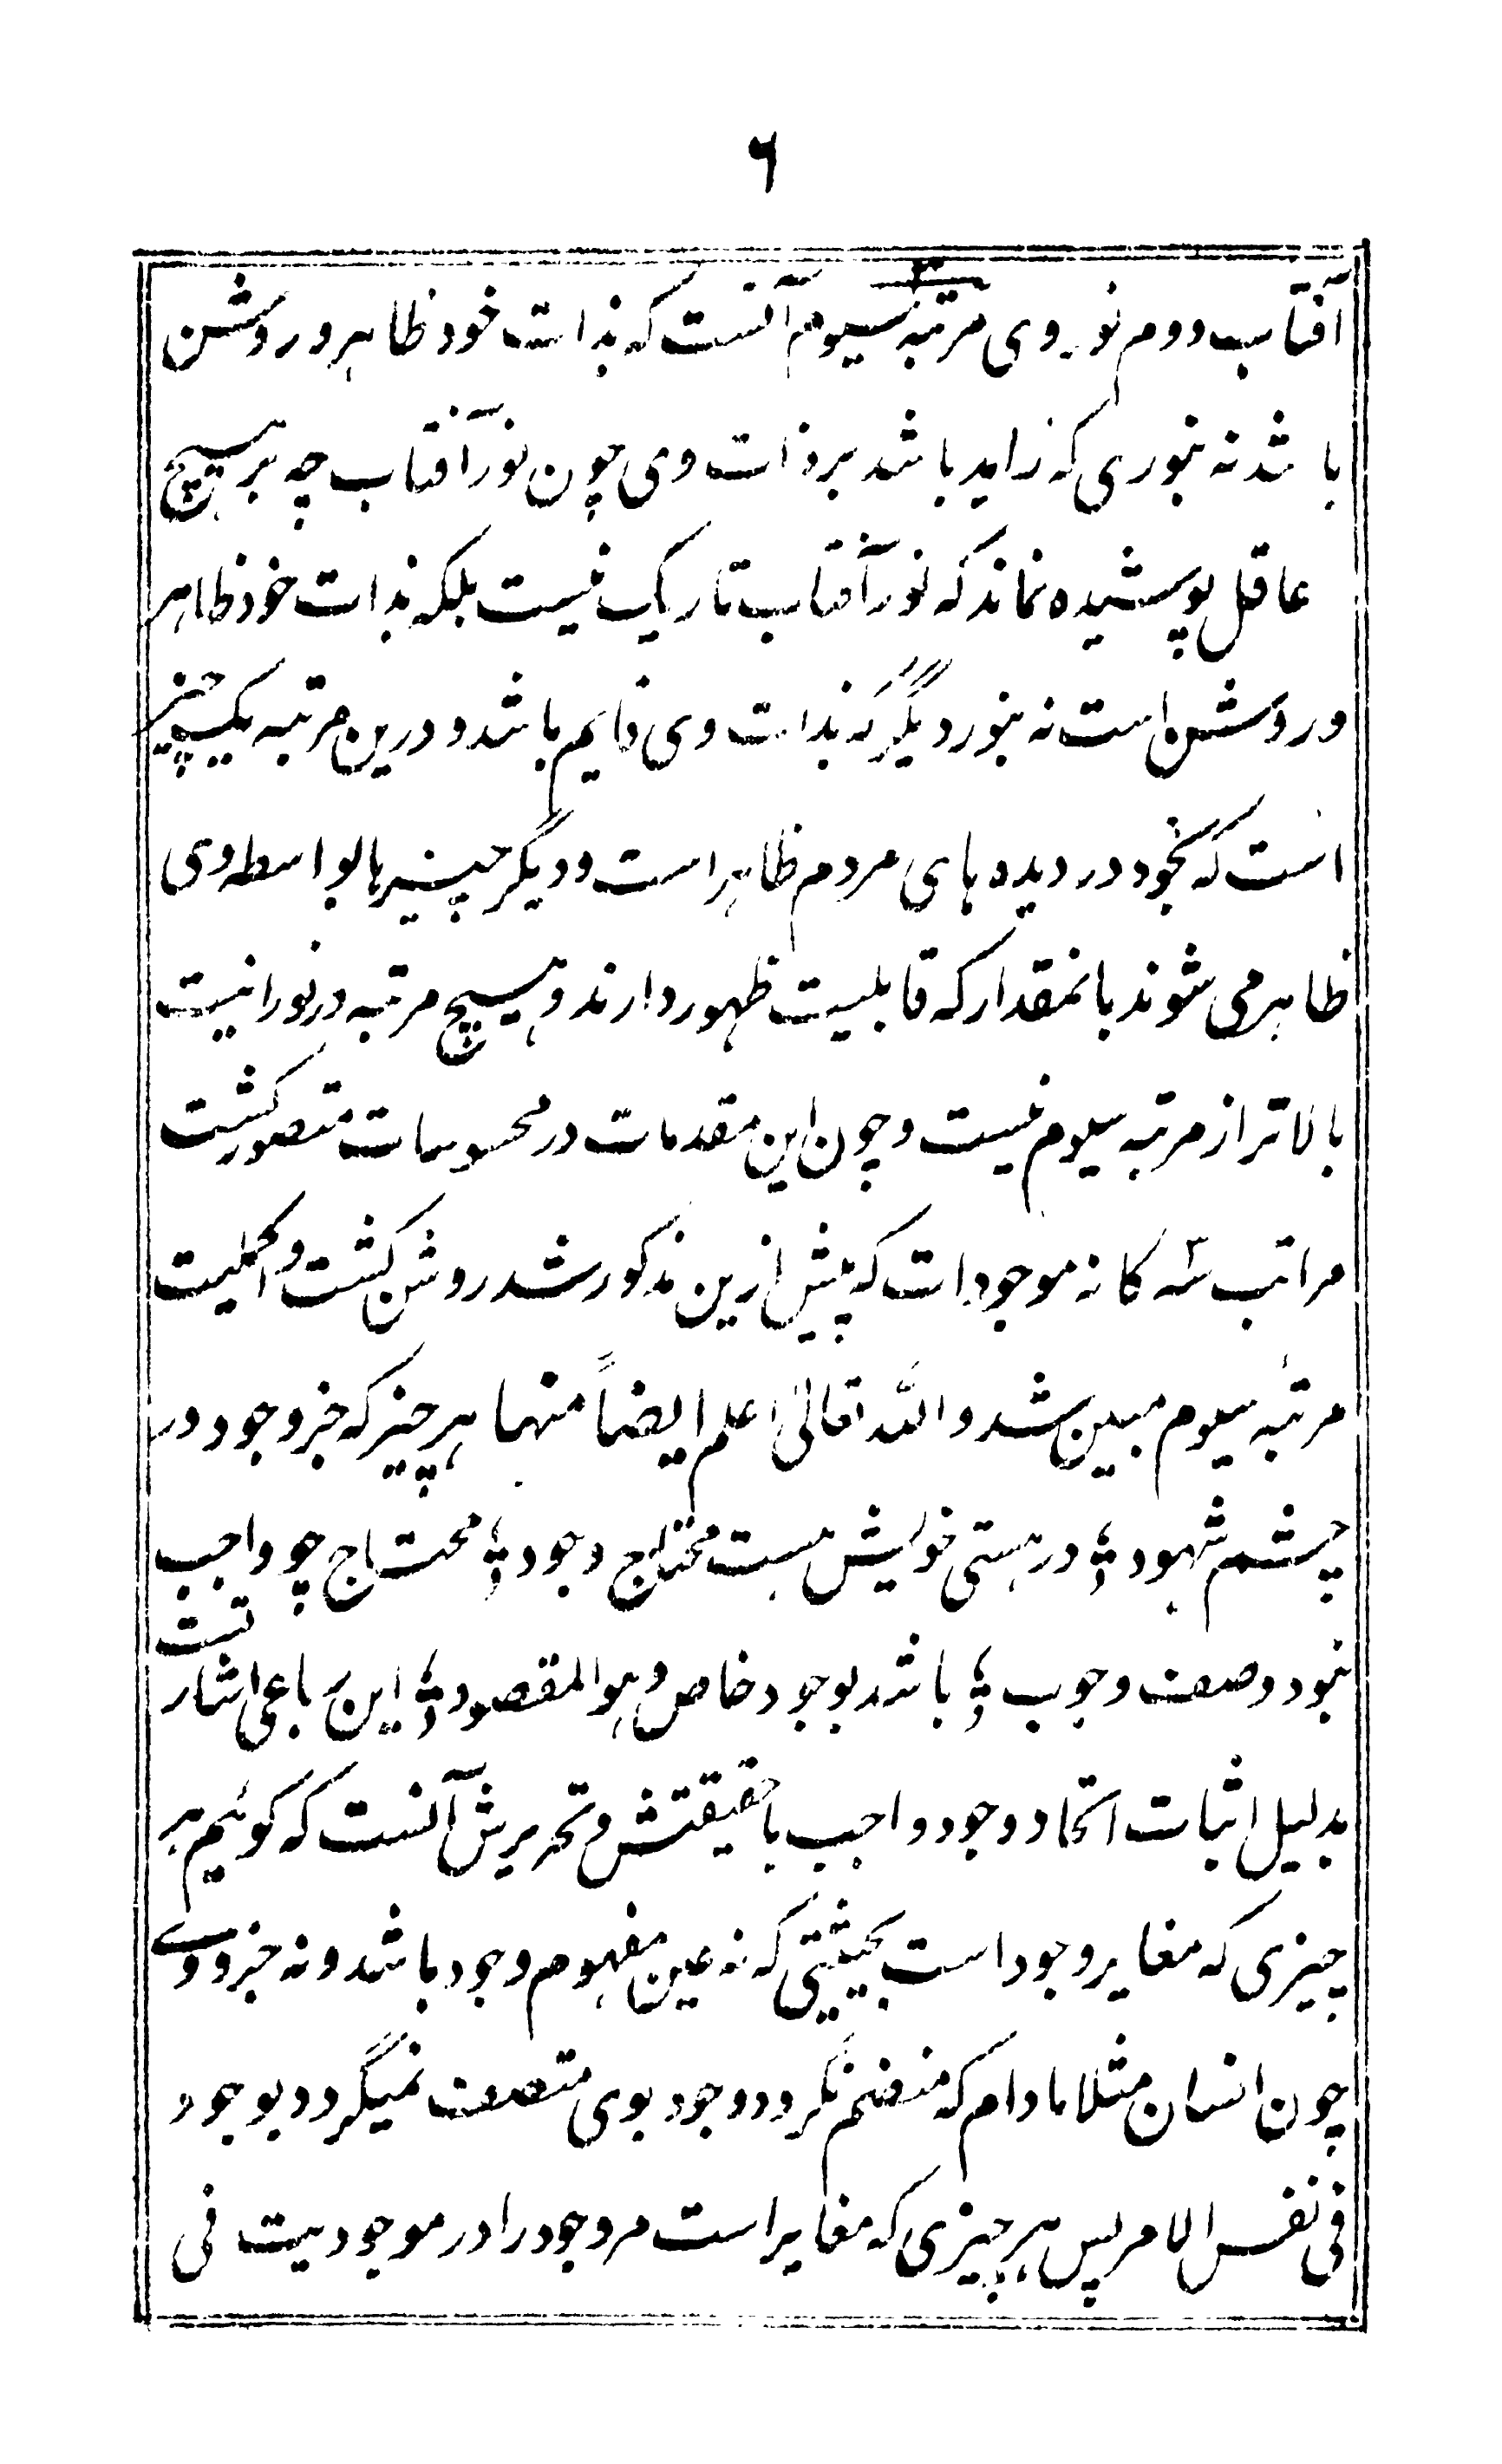 ۶
آفتاب دوم نور وی مرتبه سیوم آنست که بذات خود ظاهر و روشن
باشد نه بنوری که زاید باشد بر ذات وی چون نور آفتاب چه بر هیچ
عاقل پوشیده نماند که نور آفتاب تاریک نیست بلکه بذات خود ظاهر
و روشن است نه بنور دیگر که بذات وی قایم باشد و درین مرتبه یک چیز
است که بخود در دیده های مردم ظاهر است و دیگر چیزها بواسطه وی
ظاهر می شوند بانمقدار که قابلیت ظهور دارند و هیچ مرتبه در نورانیت
بالاتر از مرتبه سیوم نیست و چون این مقدمات در محسوسات متصور گشت
مراتب سه کانه موجودات که پیش ازین مذکور شد روشن کشت و اکملیت
مرتبه سیوم مبین شد والله تعالی اعلم ایضاً منهما هر چیز که جز وجود در
چشم شهود ؛ در هستی خویش هست محتاج وجود ؛ محتاج چو واجب
نبود وصف وجوب ؛ باشد بوجود خاص و هو المقصود ؛ این رباعی اشارتست
بدلیل اثبات اتحاد وجود واجب با حقیقتش و تحریرش آنست که کوئیم هر
چیزی که مغایر وجود است بحیثیتی که نه عین مفهوم وجود باشد و نه جزو وے
چون انسان مثلا مادام که منضم نگردد وجود بوی متصف نمیگردد بوجود
فی نفس الامر پس هر چیزی که مغایر است مر وجود را در موجودیت فی